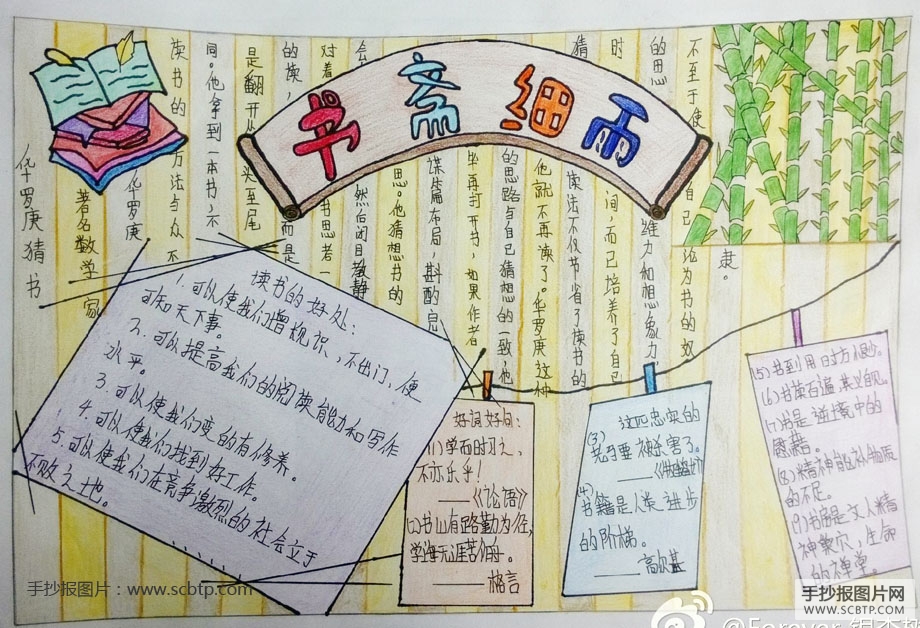 书斋细雨
华罗庚猜书
著名数学家
华罗庚
读书的方法与众不
同。他拿到一本书,不
是翻开从头至尾
的读,而是
对着书思考一
会然后闭目静
思。他猜想书的
谋篇布局,斟酌完
毕再打开书,如果作者
的思路与自己猜想的一致,他
他就不再读了。华罗庚这种
猜读法不仅节省了读书的
时间,而已培养了自己
的思维力和想象力,
不至于使自己沦为书的奴
隶。
读书的好处:
1.可以使我们增规识,不出门,便
可知天下事。
2.可以提高我们的阅读能力和写作
水平。
3.可以使我们变的有修养。
4.可以使我们找到好工作。
5.可以使我们在竞争激烈的社会立于
不败之地。
......
好词好句:
(1)学而时习之,
不亦乐乎!
——《论语》
(2)书山有路勤为径,
学海无涯苦作舟。
——格言
(3) 这四忠实的
要被杀害了。
(4)
书籍是人类进步
的阶梯。
——高尔基
(5)书到用时方恨少。
(6)书读百遍其义自见。
(7)书是逆境中的
慰藉。
(8)精神能补物质
的不足。
(9)书房是文人精
神巢穴,生命
的禅堂。
手抄报图片:www.scbtp.com
手抄报图片网
WWW.SCBTP.COM